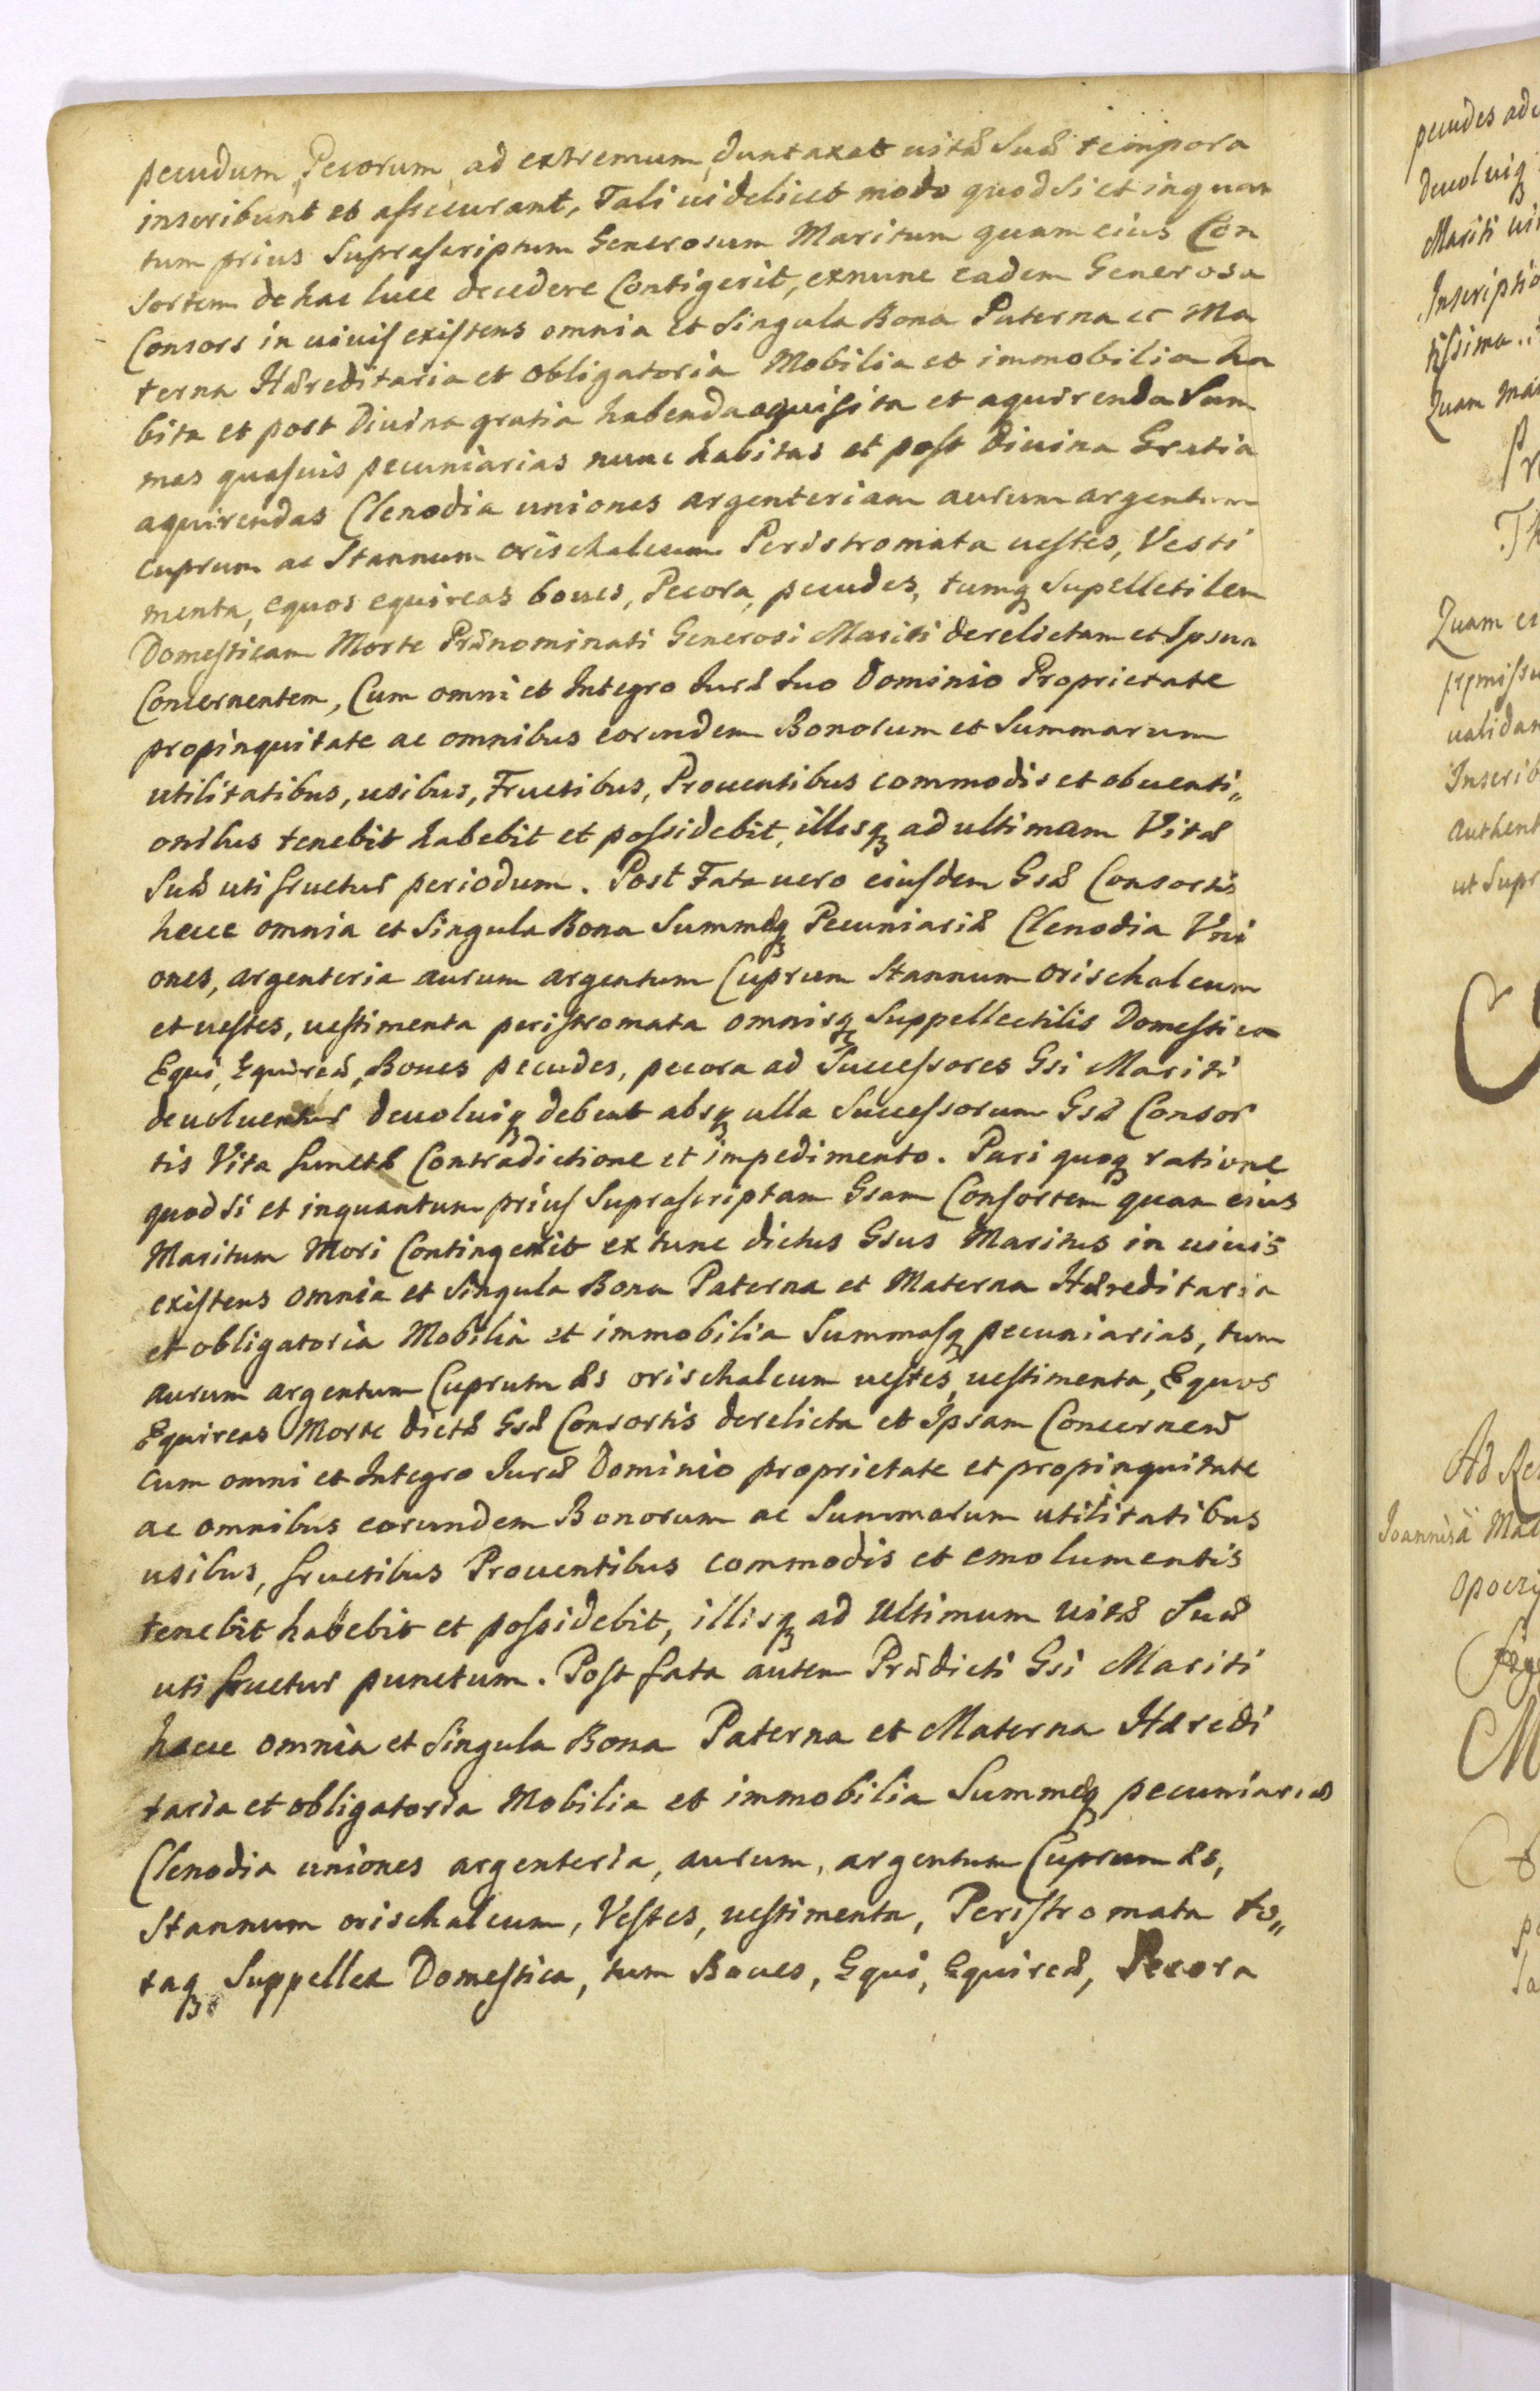 pecudum, Pecorum, ad extremum duntaxat uitæ Suæ tempora
inscribunt et assecurant, Tali uidelicet modo quod Si et inquan
tum prius Suprascriptum Generosum Maritum quam eius Con
sortem de hac luce decedere Contigerit, exnunc eadem Generosa
Consors in uiuis existens omnia et Singula Bona Paterna et Ma
terna Hæreditaria et obligatoria Mobilia et immobilia ha
bita et post Diuina gratia habenda aquisita et aquirenda Sum
mas quasuis pecuniarias nunc habitas et post Diuina Gratia
aquirendas Clenodia uniones argenteriam aurum argentum
cuprum ac Stannum orischalcum Peristromata uestes, Vesti
menta, equos equireas boues, Pecora, pecudes, tumqꝫ Supelletilem
Domesticam Morte Prænominati Generosi Mariti derelictam et Ipsum
Concernentem, Cum omni et Integro Juræ Suo Dominio Proprietate
propinquitate ac omnibus eorundem Bonorum et Summarum
utilitatibus, usibus, Fructibus, Prouentibus commodis et obuenti„
onibus tenebit habebit et possidebit, illisqꝫ ad ultimam Vitæ
Suæ uti fructur periodum. Post Fata uero eiusdem Gsæ Consortis
hæcce omnia et Singula Bona Summæqꝫ Pecuniariæ Clenodia Vni
ones, argenteria aurum argentum Cuprum Stannum orischalcum
et uestes, uestimenta peristromata omnisqꝫ Suppellectilis Domestica
Equi, Equireæ, Boues pecudes, pecora ad Successores Gsi Mariti
deuoluentur deuoluiqꝫ debent absqꝫ ulla Successorum Gsæ Consor
tis Vita functæ Contradictione et impedimento. Pari quoqꝫ ratione
quod Si et inquantum prius Suprascriptam Gsam Consortem quam eius
Maritum Mori Contingerit ex tunc dictus Gsus Maritus in uiuis
existens omnia et Singula Bona Paterna et Materna Hæreditaria
et obligatoria Mobilia et immobilia Summasqꝫ pecuniarias, tum
aurum argentum Cuprum æs orischalcum uestes, uestimenta, Equos
Equireas Morte dictæ Gsæ Consortis derelicta et Ipsam Concernen
cum omni et Integro Juræ Dominio proprietate et propinquitate
ac omnibus eorundem Bonorum ac Summarum utilitatibus
usibus, fructibus Prouentibus commodis et emolumentis
tenebit habebit et possidebit, illisqꝫ ad Ultimum uitæ Suæ
uti fructur punctum. Post fata autem Prædicti Gsi Mariti
hæcce omnia et Singula Bona Paterna et Materna Hæredi
taria et obligatoria Mobilia et immobilia Summæqꝫ pecuniariæ
Clenodia uniones argenteria, aurum, argentum Cuprum æs,
Stannum orischalcum, Vestes, uestimenta, Peristromata to„
taqꝫ Suppellex Domestica, tum Boues, Equi, Equireæ, Pecora
pecudes
deuoluiqꝫ
Mariti
Inscriptio
tissima
Quam
Quam
Inscrib
ut Supr
Ad